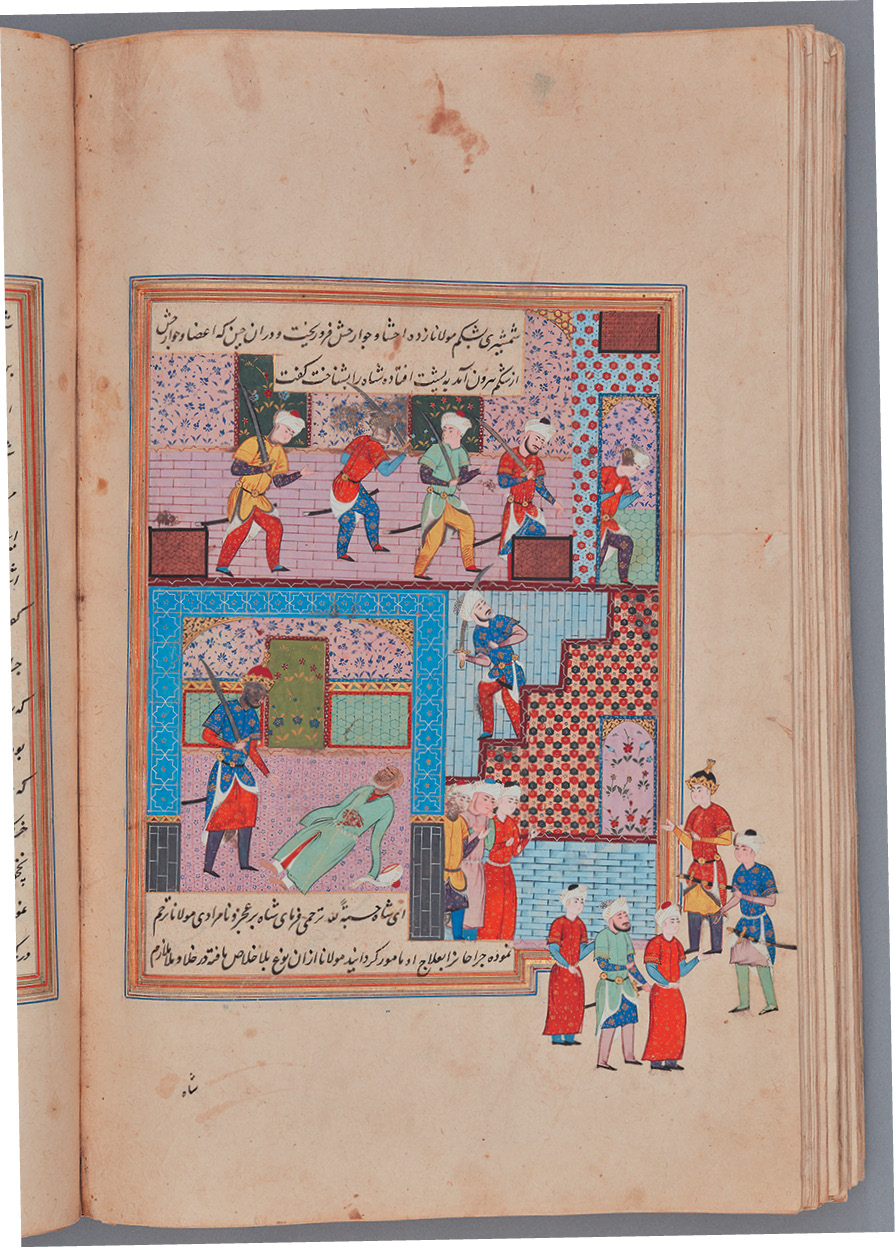 شمشیری بشکم مولانا زده احشا و جوارحش فرو ریخت و در ان حین که اعضا و جوارحش
از شکم بیرون آمد به پشت افتاده شاه را بشناخت گفت
ای شاه حسبة لله ترحمی فرمای شاه بر عجز و نامرادی مولانا ترحم
نموده جراحانرا بعلاج او مامور کردانید مولانا از ان نوع بلا خلاص یافته در خلا و ملا ملازم
شاه